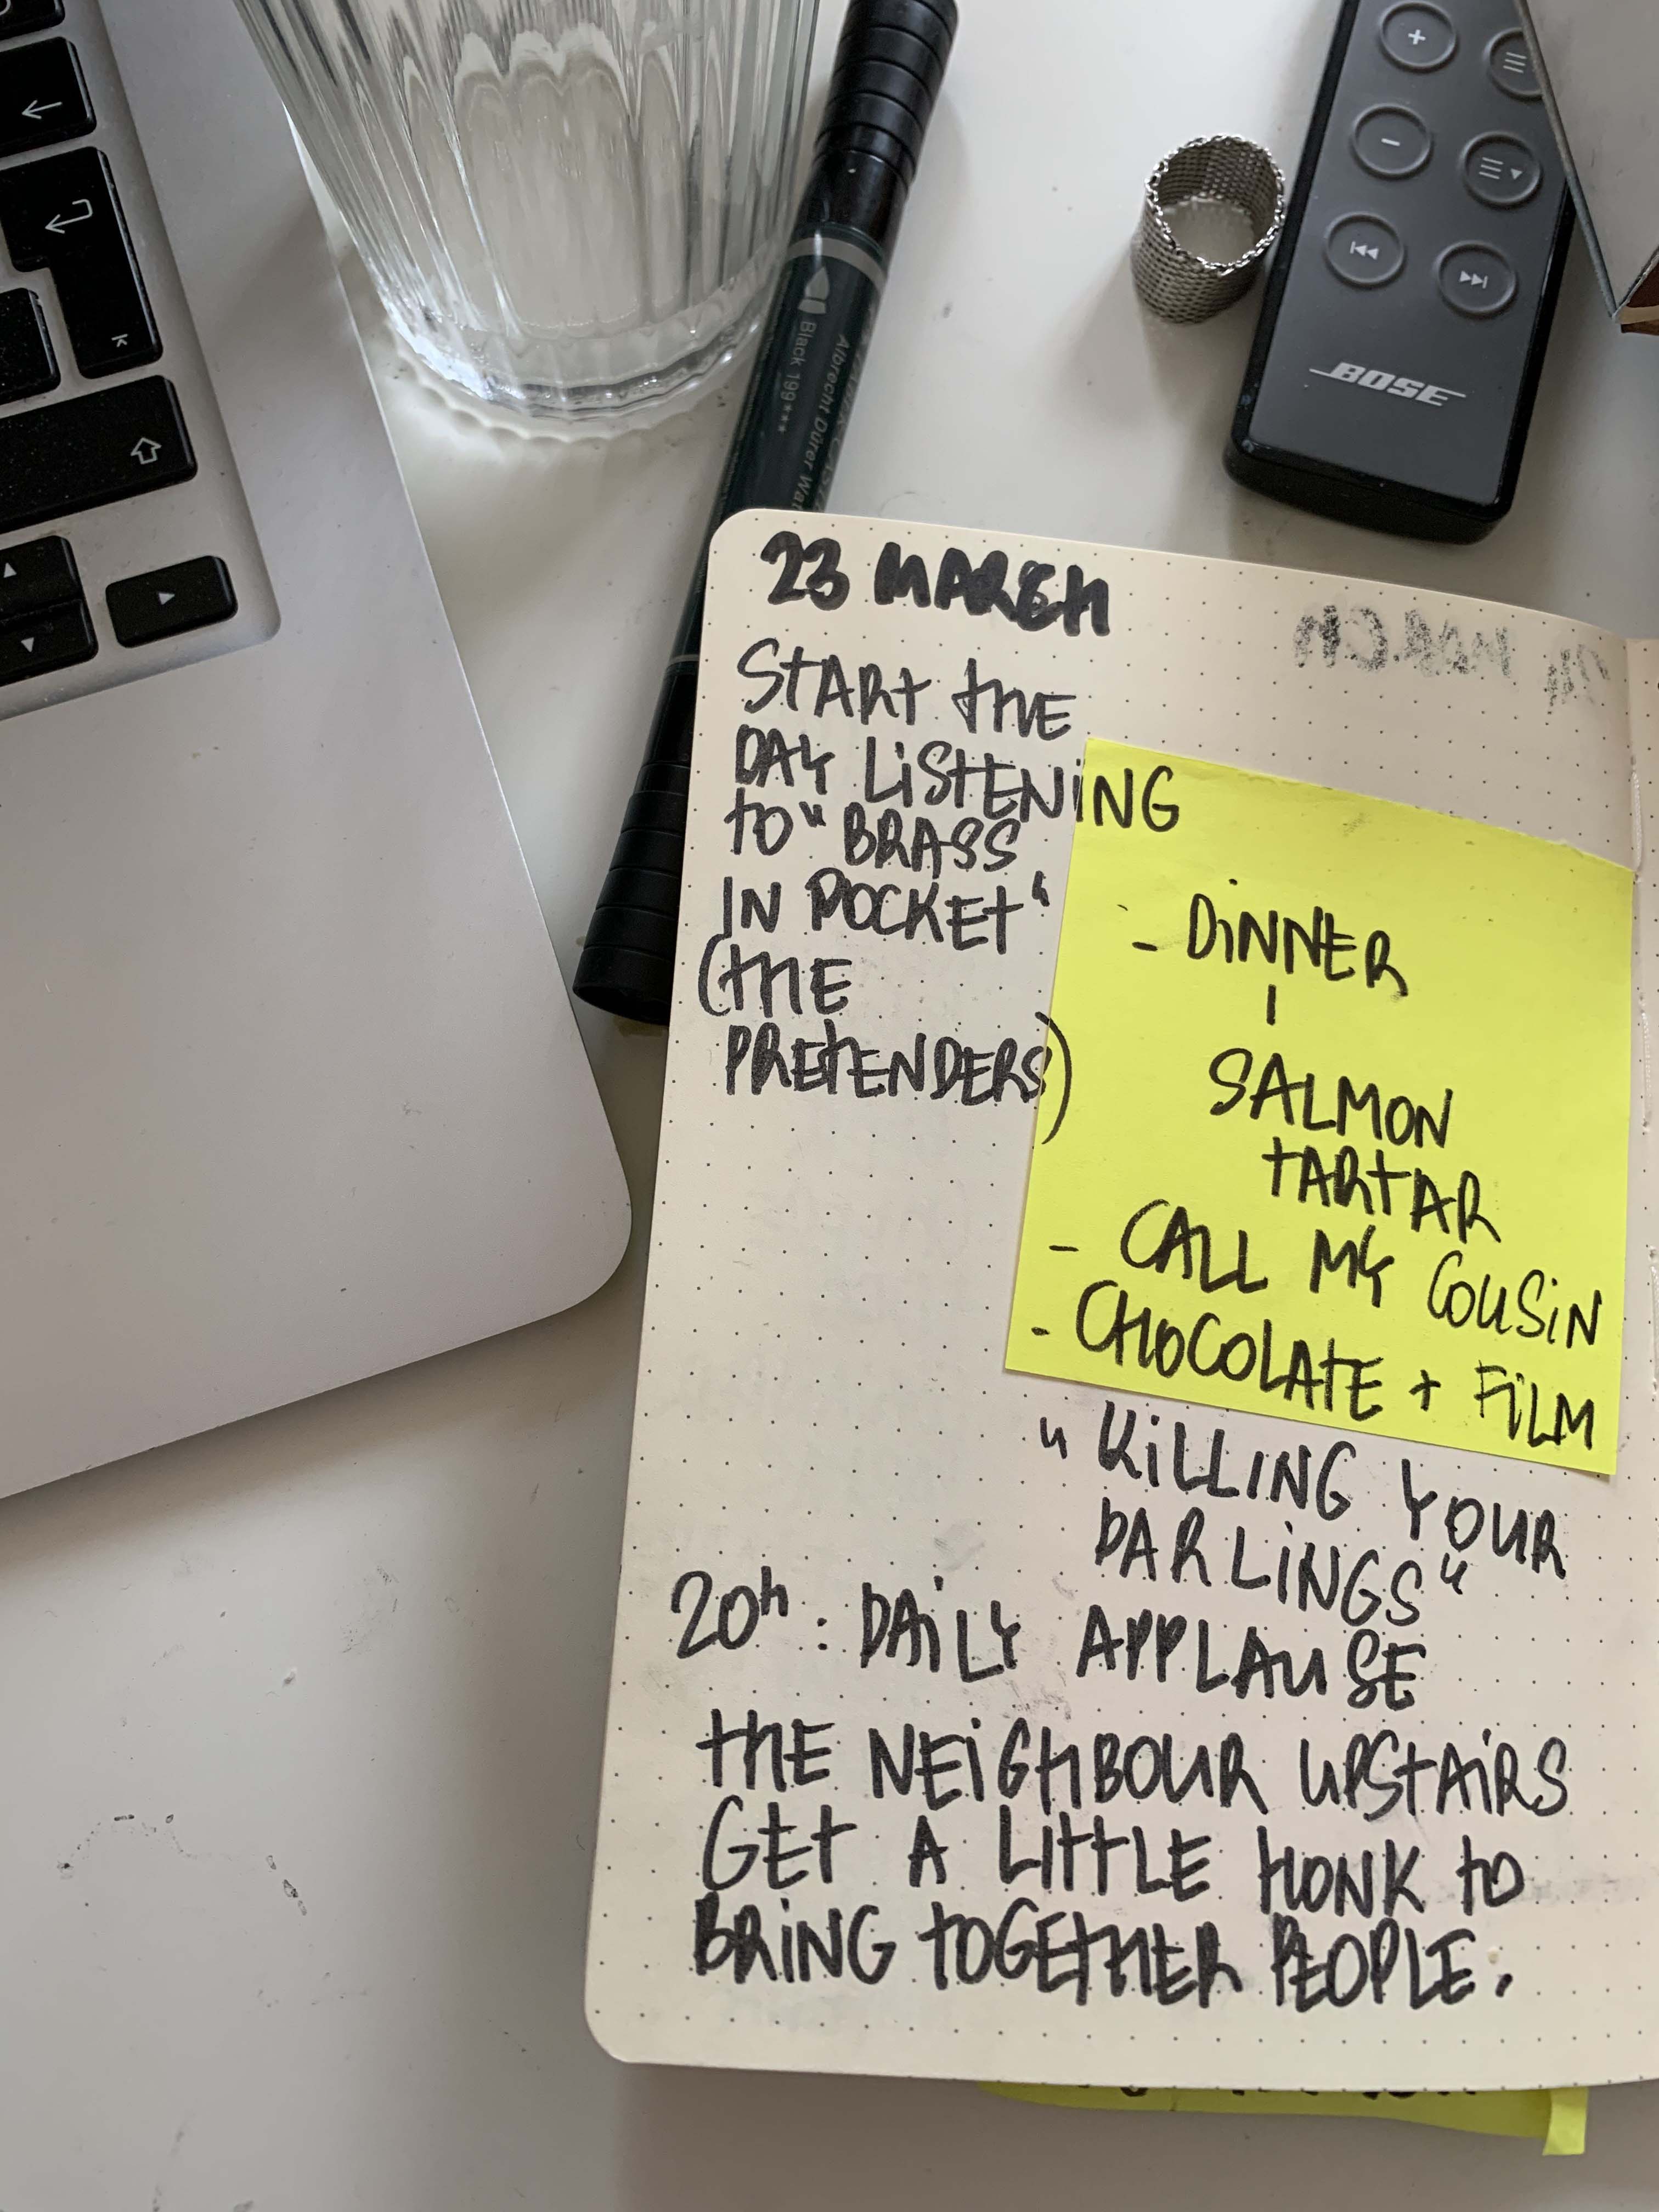 BOSE
Albrecht Dürer
Black 199***
23 MARCH
START THE
DAY LISTENING
TO "BRASS
IN POCKET"
(THE
PRETENDERS)
- DINNER
SALMON
TARTAR
- CALL MY COUSIN
- CHOCOLATE + FILM
"KILLING YOUR
DARLINGS"
20h: DAILY APPLAUSE
THE NEIGHBOUR UPSTAIRS
GET A LITTLE HONK TO
BRING TOGETHER PEOPLE.